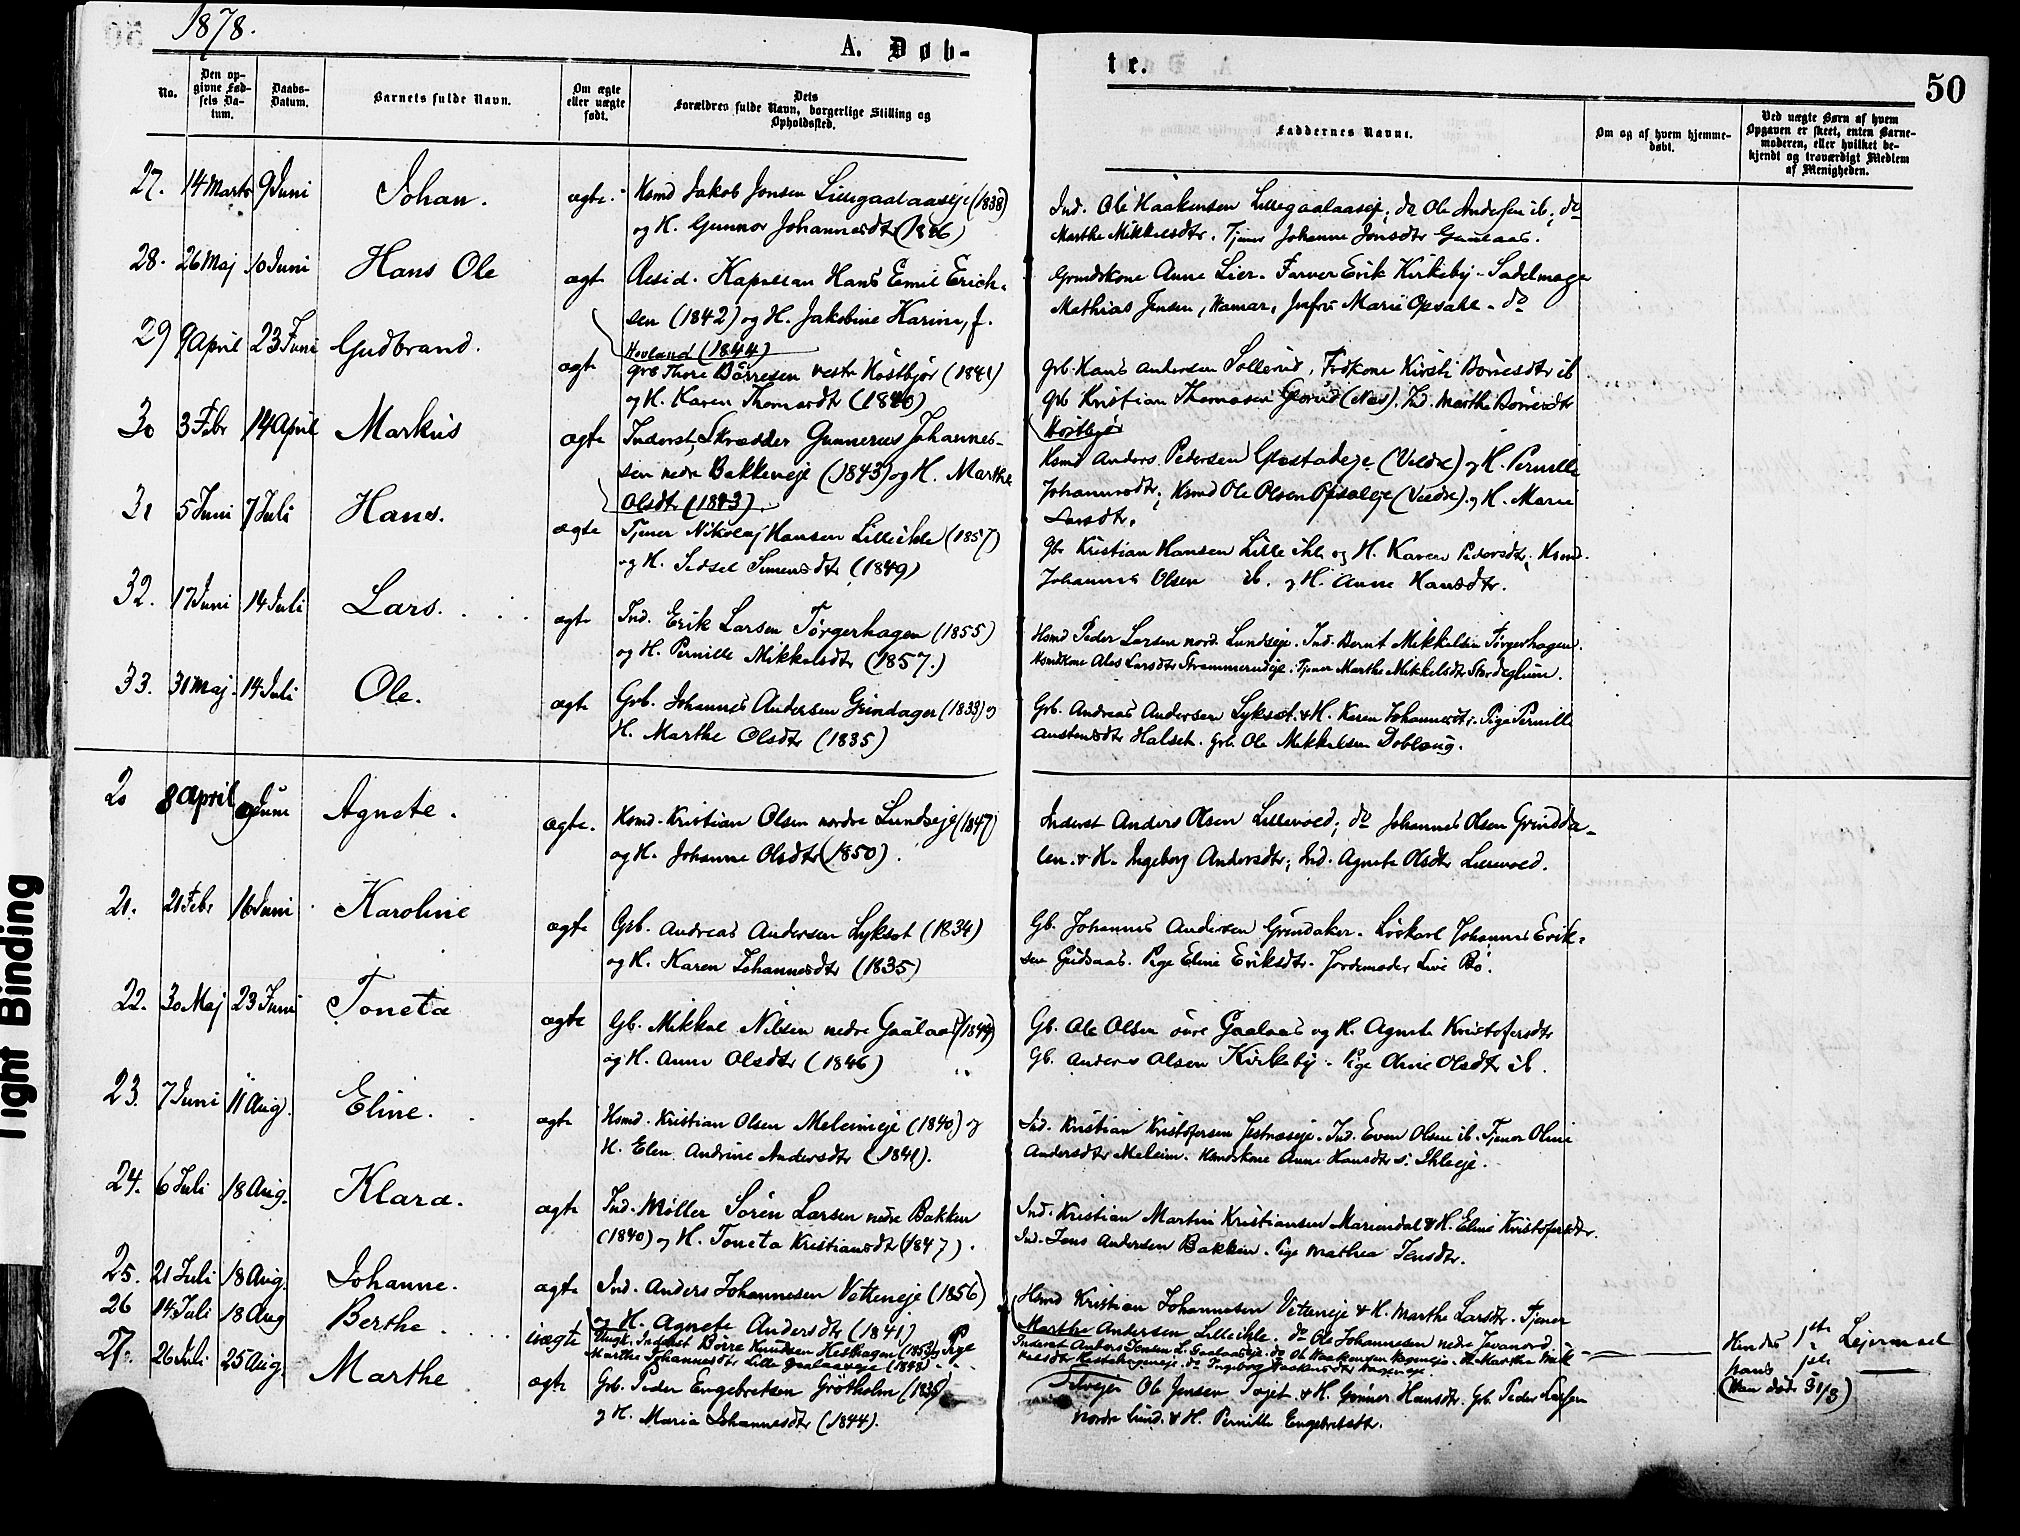 1878.
A. Døb-
No.
Den op-
givne Fød-
sels Da-
tum.
Daabs-
Datum.
Barnets fulde Navn.
Om ægte
eller uægte
født.
Dets
Forældres fulde Navn, borgerlige Stilling og
Opholdssted.
27. 14 Marts 9 Juni Johan. ægte. Hsmd Jakob Jonsen Lillegaalaaseje (1838)
og H. Gunnor Johannesdtr
28. 26 Maj 10 Juni Hans Ole ægte Resid. Kapellan Hans Emil Erich-
sen (1842) og H. Jakobine Karine, f.
Hovland (1844)
29 9 April 23 Juni Gudbrand. ægte Grb Thore Børresen vestr Høstbjør (1841)
og H. Karen Thomasdtr
30 3 Febr 14 April Markus ægte Inderst, Skrædder Gunnerus Johannes-
sen nedre Bakkeneje (1843) og H. Marthe
Olsdtr
31 5 Juni 7 Juli Hans. ægte Tjener Nikolaj Hansen Lilleihle (1857)
og H. Sidsel Simensdtr (1849)
32. 17 Juni 14 Juli Lars. ægte Ind. Erik Larsen Tørgerhagen (1855)
og H. Pernille Mikkelsdtr (1857.)
33. 31 Maj. 14 Juli Ole. ægte Grb. Johannes Andersen Grindager (1833) og
H. Marthe Olsdtr (1835)
20 8 April 9 Juni Agnete. ægte. Hsmd. Kristian Olsen nordre Lundseje (1847)
og H. Johanne Olsdtr (1850).
21. 21 Febr 16 Juni Karoline ægte Grb. Andreas Andersen Lykset (1834)
og H. Karen Johannesdtr (1835)
22. 30 Maj 23 Juni Toneta ægte Gb. Mikkel Nilsen nedre Gaalaas (1844)
og H. Anne Olsdtr (1846)
23. 7 Juni 11 Aug. Eline. ægte Hsmd. Kristian Olsen Meleimeje (1840) og
H. Elen Andrine Andersdtr (1841).
24. 6 Juli 18 Aug. Klara. ægte Ind. Møller Søren Larsen nedre Bakken
(1840) og H. Toneta Kristiansdtr (1847).
25. 21 Juli 18 Aug. Johanne. ægte Ind. Anders Johannesen Vetteneje (1856)
og H. Agnete Andersdtr (1841)
26 14 Juli 18 Aug Berthe. uægte Ungk. Inderst Børre Knudsen Heshagen Pige
Marthe Johannesdtr Lille Gaalaaseje (1848)
27. 26 Juli 25 Aug. Marthe ægte Grb. Peder Engebretsen Grøtholm
og H. Maria Johannesdtr (1844).
te.
50
Faddernes Navne.
Om og af hvem hjemme-
døbt.
Ved uægte Børn af hvem
Opgaven er skeet, enten Barne-
moderen, eller hvilket be-
kjendt og troværdigt Medlem
af Menigheden.
Ind. Ole Haakensen Lillegaalaasej; do Ole Andersen ib; do
Marthe Mikkelsdtr. Tjener Johanne Jonsdtr Gaalaas.
Grmdskone Anne Lier. Farver Erik Kirkeby. Sadelmager
Mathias Jensen, Hamar, Jnfru Marie Opsahl. do
Grb. Hans Andersen Sollerud, Fødkone Kirsti Børresdtr ib
Grb Kristian Thomasen (Næs). Ind. Marthe Børresdtr
Høstbjør
Hsmd Anders Pedersen Glæstadeje (Veldre) og H. Pernille
Johannesdtr; Hsmd Ole Olsen Opsaleje (Veldre). og H. Marie
Larsdtr.
Gbr Kristian Hansen Lille ihle og H. Karen Pedersdtr; Hsmd.
Johannes Olsen ib. og H. Anne Hansdtr.
Hsmd Peder Larsen nord. Lundseje. Ind. Bernt Mikkelsen Tørgerhagen.
Hsmdkone Larsdtr. Tjener Marthe Mikkelsdtr
Grb. Andreas Andersen Lykset. & H. Karen Johannesdtr. Pige Pernille
Austensdtr Halset. Grb. Ole Mikkelsen Doblaug.
Inderst Anders Olsen Lillevold; do Johannes Olsen Grindda-
len. & H. Ingeborg Andersdtr; Ind. Agnete Olsdtr Lillevold.
Gb. Johannes Andersen Grindaker. Løskarl Johannes Erik-
sen Gudsaas. Pige Eline Eriksdtr. Jordemoder Live Bø.
Gb. Ole Olsen øvre Gaalaas og H. Agnete Kristofersdtr
Gb. Anders Olsen Kirkeby. Pige Oline Olsdtr ib.
Ind. Kristian Kristofersen Jestnæseje. Ind. Even Olsen ib. Tjener Oline
Andersdtr Meleim. Hsmdskone Anne Hansdtr s. Ihleeje.
Ind. Kristian Martin Kristiansen Mariendal & H. Eline Kristofersdtr.
Ind. Jens Andersen Bakken. Pige Mathea Jensdtr.
Hsmd Kristian Johannesen Vetteneje & H. Marthe Larsdtr. Tjener
Marthe Andersen Lilleihle. do Ole Johannesen nedre Jevanord.
Inderst Anders Jensen L. Gaalaaseje. do Ole Haakensen Hageneje. do Marthe Mik-
kelsdtr do Ingeborg Haakensdtr Hageneje.
Hendes 1ste Lejermaal
hans 1ste
(Han døde 31/8)
Selvejer Ole Jensen Tøjet. & H. Gunnor Hansdtr. Gb. Peder Larsen
nordre Lund. & H. Pernille Engebretsdtr.
Tight Binding